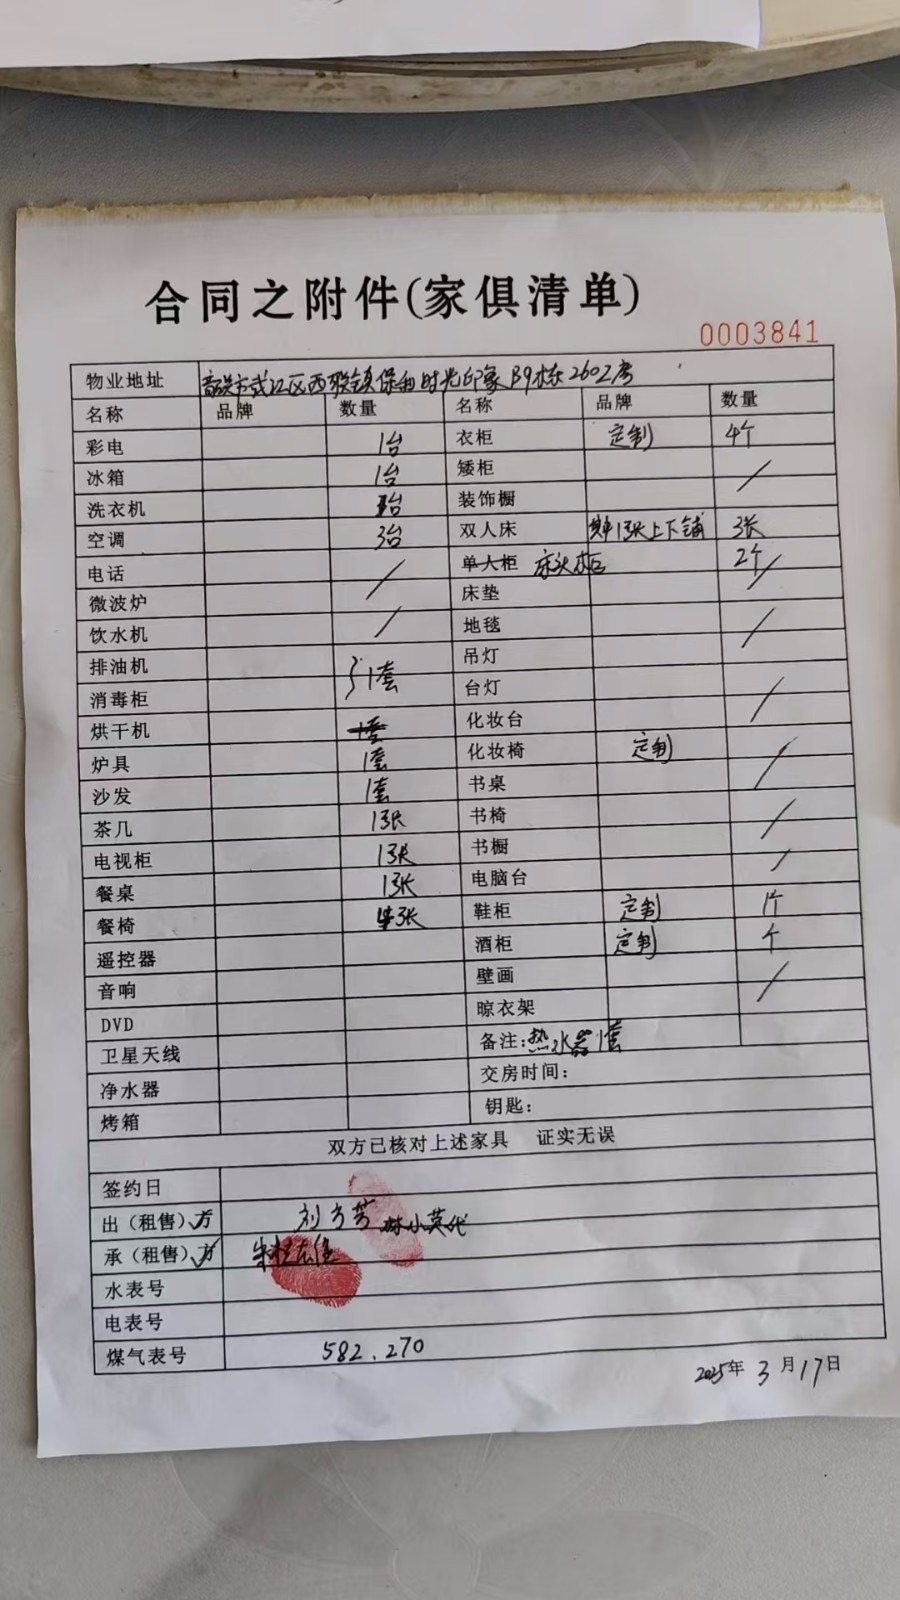 合同之附件(家俱清单)
0003841
物业地址 韶关市武江区西联镇保利时光印象B9栋2602房
名称 品牌 数量 名称 品牌 数量
彩电 1台 衣柜 定制 4个
冰箱 1台 矮柜
洗衣机 1台 装饰橱
空调 3台 双人床 其中1张上下铺 3张
电话 单人柜 床头柜 2个
微波炉 床垫
饮水机 地毯
排油机 1套 吊灯
消毒柜 台灯
烘干机 化妆台
炉具 1套 化妆椅 定制
沙发 1套 书桌
茶几 1张 书椅
电视柜 1张 书橱
餐桌 1张 电脑台
餐椅 张 鞋柜 定制 1个
遥控器 酒柜 定制 个
音响 壁画
DVD 晾衣架
卫星天线 备注:热水器1套
净水器 交房时间:
烤箱 钥匙:
双方已核对上述家具 证实无误
签约日
出(租售)方 刘方芳 林小英代
承(租售)方
水表号
电表号
煤气表号 582.270
2025年3月17日